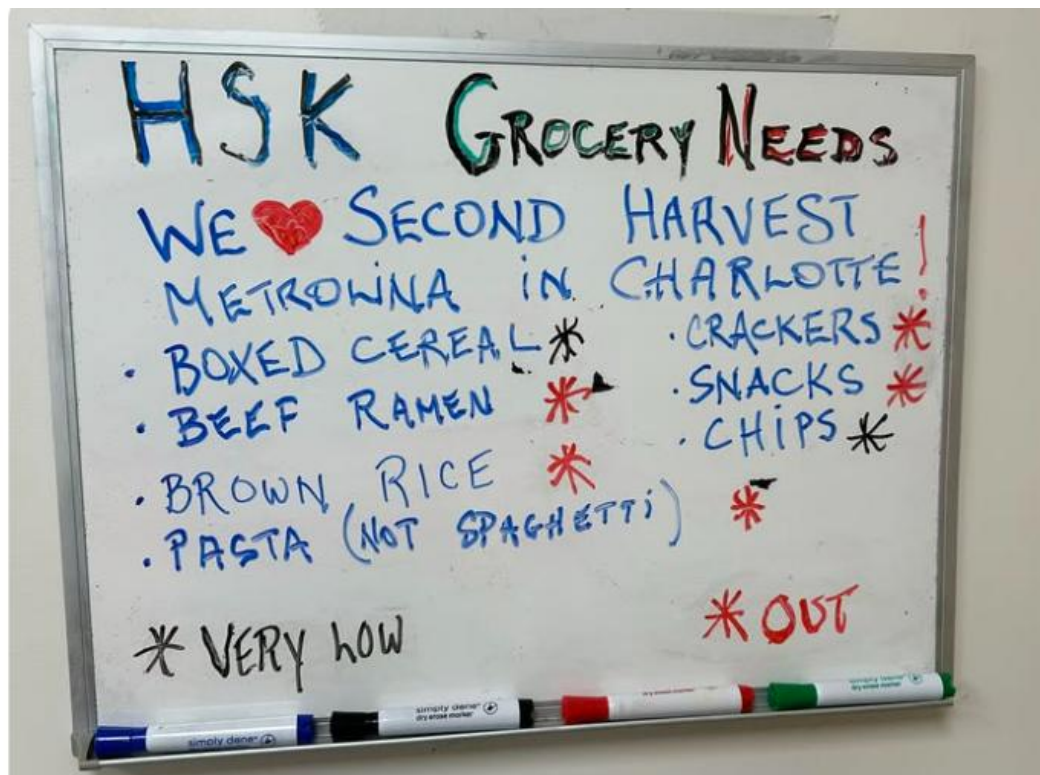 HSK GROCERY NEEDS
WE ❤ SECOND HARVEST
METROLINA IN CHARLOTTE!
· BOXED CEREAL *
· BEEF RAMEN *
· BROWN RICE *
· PASTA (NOT SPAGHETTI) *
· CRACKERS *
· SNACKS *
· CHIPS *
* VERY LOW
* OUT
simply done
simply done
dry erase marker
dry erase marker
simply done
dry erase marker